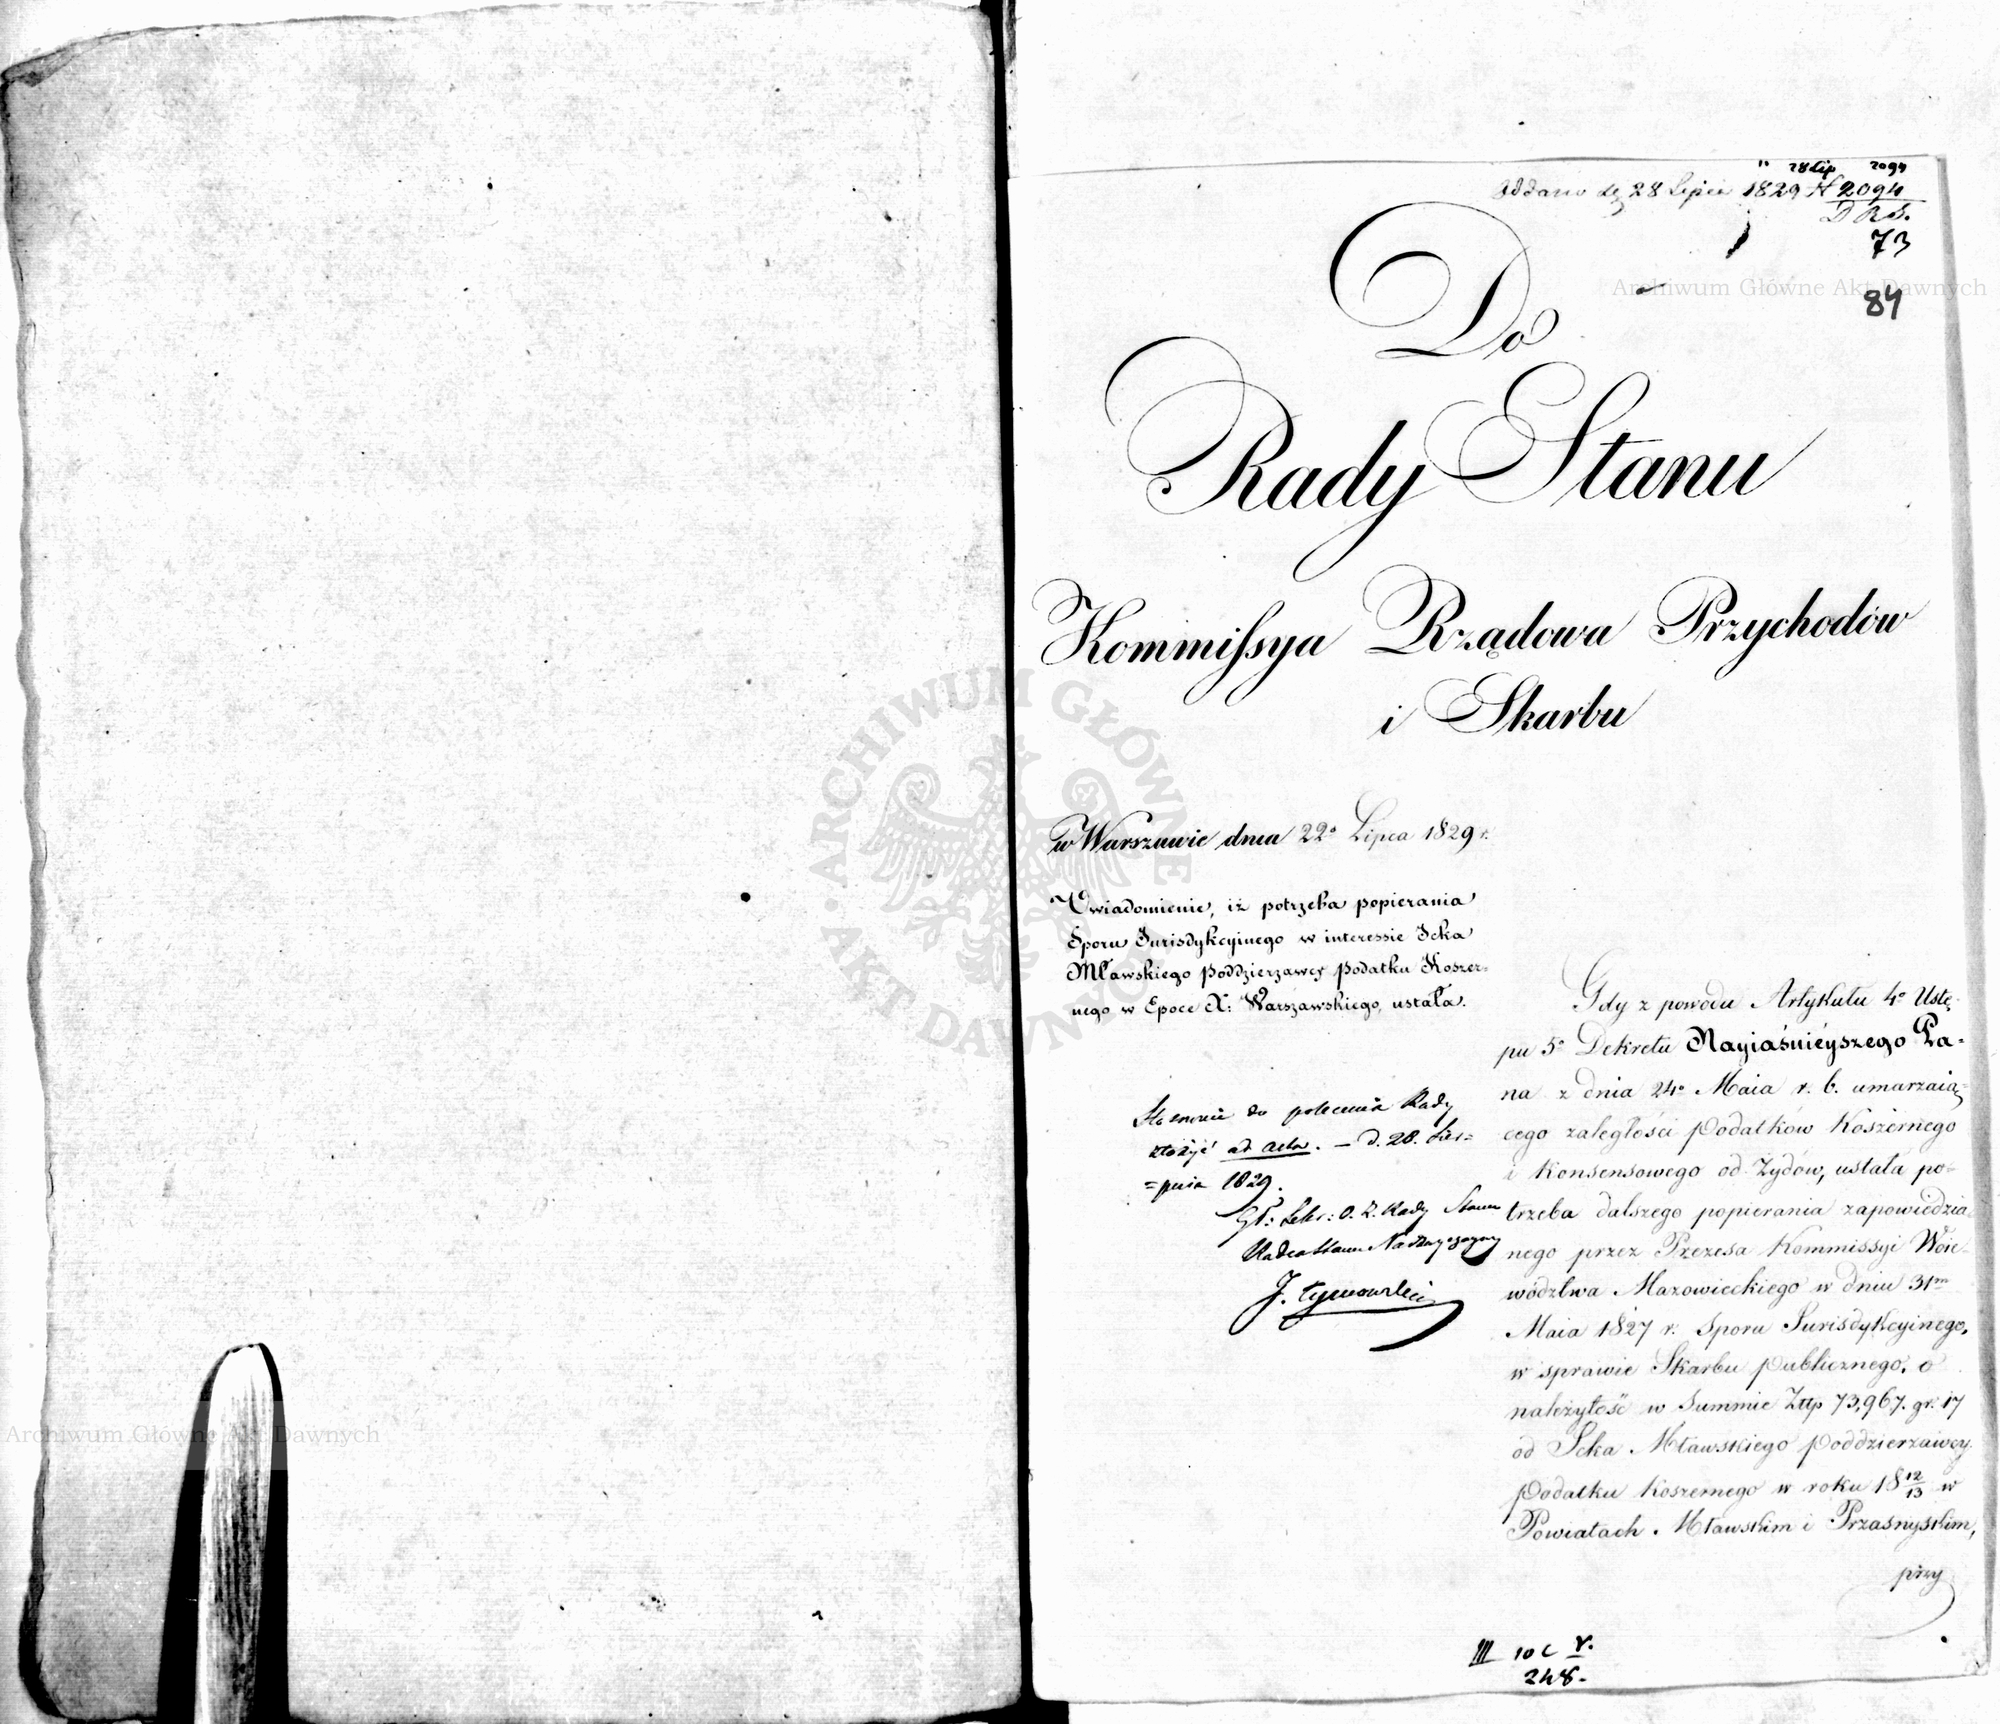 28 Lip 2094
Oddano d. 28 Lipca 1829 N 2094
D R S.
73
84
Do
Rady Stanu
Kommissya Rządowa Przychodów
i Skarbu
w Warszawie dnia 22º Lipca 1829 r.
Uwiadomienie, iż potrzeba popierania
Sporu Jurisdykcyinego w interessie Icka
Mławskiego poddzierżawcy podatku Koszer-
nego w Epoce X: Warszawskiego, ustała.
Stosownie do polecenia Rady
złożyć ad acta. — d. 20. Sier=
=pnia 1829.
Gł: Sekr: O. Z. Rady Stanu
Radca Stanu Nadzwyczayny
J. Tymowski
Gdy z powodu Artykułu 4º Ustę-
pu 5º Dekretu Nayiaśnieyszego Pa-
na z dnia 24º Maia r. b. umarzaią-
cego zaległości podatków Koszernego
i Konsensowego od Żydów, ustała po-
trzeba dalszego popierania zapowiedzia
nego przez Prezesa Kommissyi Woie-
wództwa Mazowieckiego w dniu 31m
Maia 1827 r. Sporu Jurisdykcyinego,
w sprawie Skarbu publicznego, o
należytość w Summie Złtp 73,967. gr. 17
od Icka Mławskiego poddzierżawcy
podatku Koszernego w roku 18 12/13 w
Powiatach Mławskim i Przasnyskim,
przy
III 10 c r.
248.
Archiwum Główne Akt Dawnych
ARCHIWUM GŁÓWNE AKT DAWNYCH
Archiwum Główne Akt Dawnych